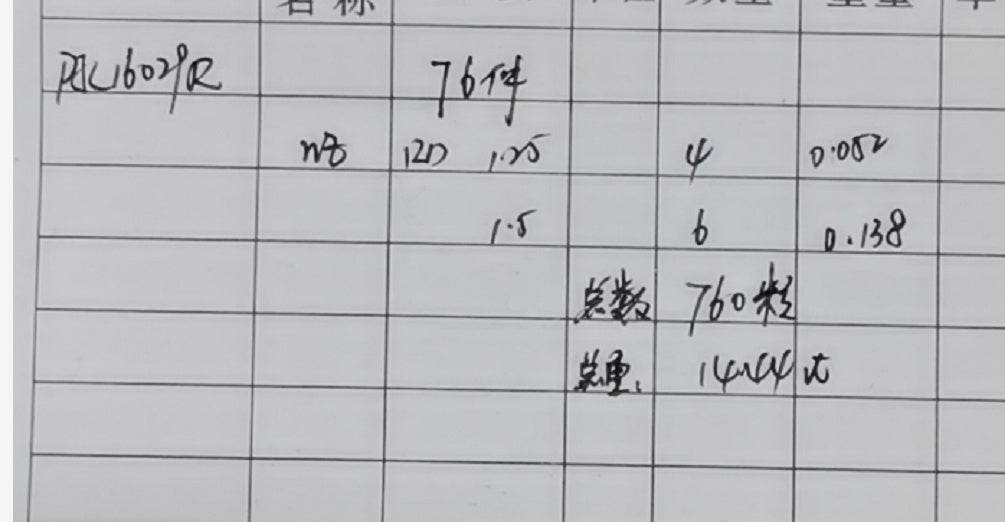 名称 数量 重量
76件
120 1.25 4 0.052
1.5 6 0.138
总数 760粒
总重 14.44